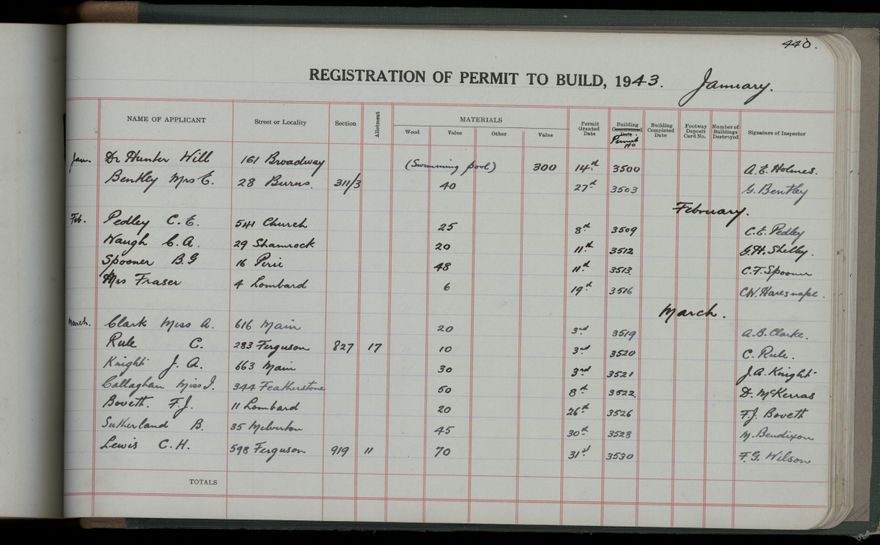 440.
REGISTRATION OF PERMIT TO BUILD, 1943. January.
NAME OF APPLICANT Street or Locality Section Allotment MATERIALS Wood Value Other Value Permit Granted Date Building Permit No Building Completed Date Footway Deposit Card No. Number of Buildings Destroyed Signature of Inspector
Jan. Dr Hunter Will 161 Broadway (Swimming pool) 300 14th 3500 A.E. Holmes.
Bentley Mrs E. 28 Burns. 311/3 40 27th 3503 G. Bentley
February.
Feb. Pedley C. E. 541 Church 25 8th 3509 C.E. Pedley
Waugh C. A. 29 Shamrock 20 11th 3512 G.H. Shelby
Spooner B.G 16 Pirie 48 11th 3513 C.F. Spooner
Mrs Fraser 4 Lombard 6 19th 3516 C.W. Haresnape.
March.
March. Clark Miss A. 616 Main 20 3rd 3519 A.B. Clarke.
Rule C. 283 Ferguson 827 17 10 3rd 3520 C. Rule.
Knight J. A. 663 Main 30 3rd 3521 J.A. Knight
Callaghan Miss I. 344 Featherstone 50 8th 3522 D. McKerras
Boveth. F.J. 11 Lombard 20 26th 3526 F.J. Boveth
Sutherland B. 35 Milverton 45 30th 3528 M. Bendixon
Lewis C. H. 598 Ferguson 919 11 70 31st 3530 F.G. Wilson
TOTALS